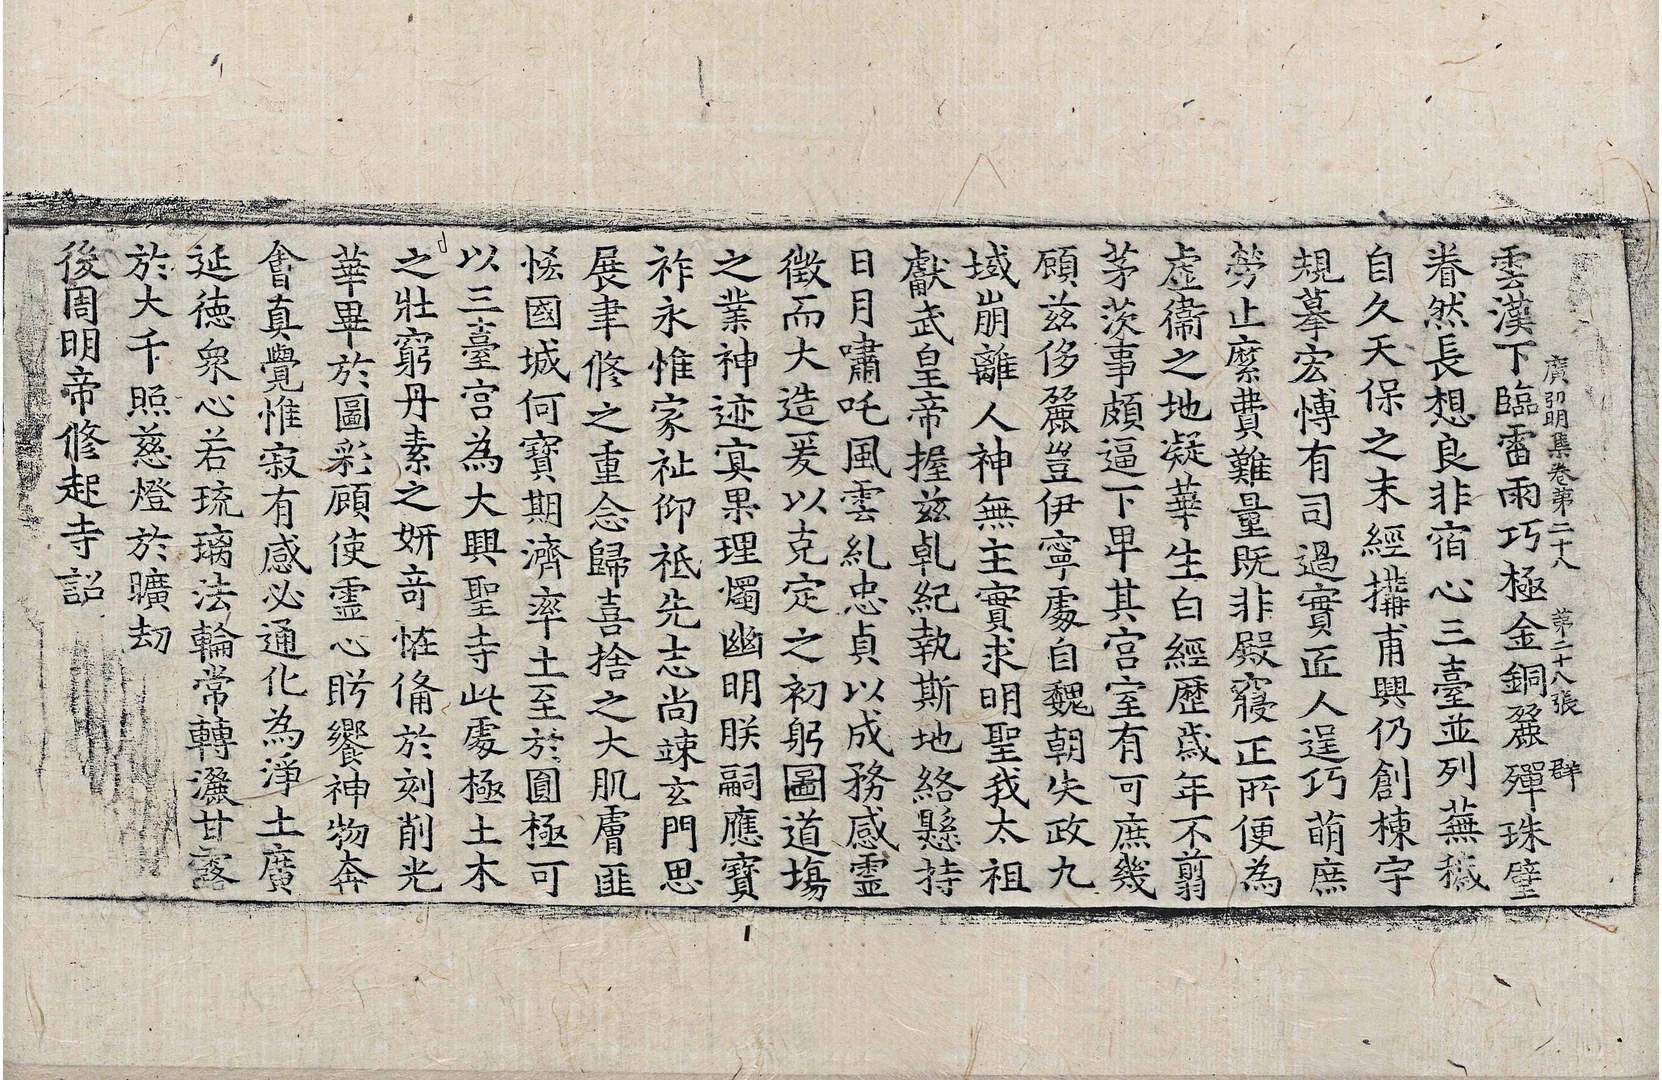 廣弘明集卷第二十八　第二十八張　群
雲漢下臨雷雨巧極金銅麗殫珠璧
眷然長想良非宿心三臺並列蕪穢
自久天保之末經搆甫興仍創棟宇
規摹宏愽有司過實匠人逞巧萌庶
勞止縻費難量既非殿寢正所便為
虛衛之地凝華生白經歷歲年不翦
茅茨事頗逼下卑其宮室有可庶幾
顧茲侈麗豈伊寧處自魏朝失政九
域崩離人神無主實求明聖我太祖
獻武皇帝握茲乹紀執斯地絡懸持
日月嘯吒風雲糺忠貞以成務感靈
徵而大造爰以克定之初躬圖道塲
之業神迹寘果理燭幽明朕嗣應寶
祚永惟家祉仰祗先志尚竦玄門思
展聿修之重念歸喜捨之大肌膚匪
恡國城何寶期濟率土至於圓極可
以三臺宮為大興聖寺此處極土木
之壯窮丹素之妍竒恠俻於刻削光
華畢於圖彩顧使靈心肹饗神物奔
會真覺惟寂有感必通化為淨土廣
延德衆心若琉璃法輪常轉灑甘露
於大千照慈燈於曠劫
後周明帝修起寺詔